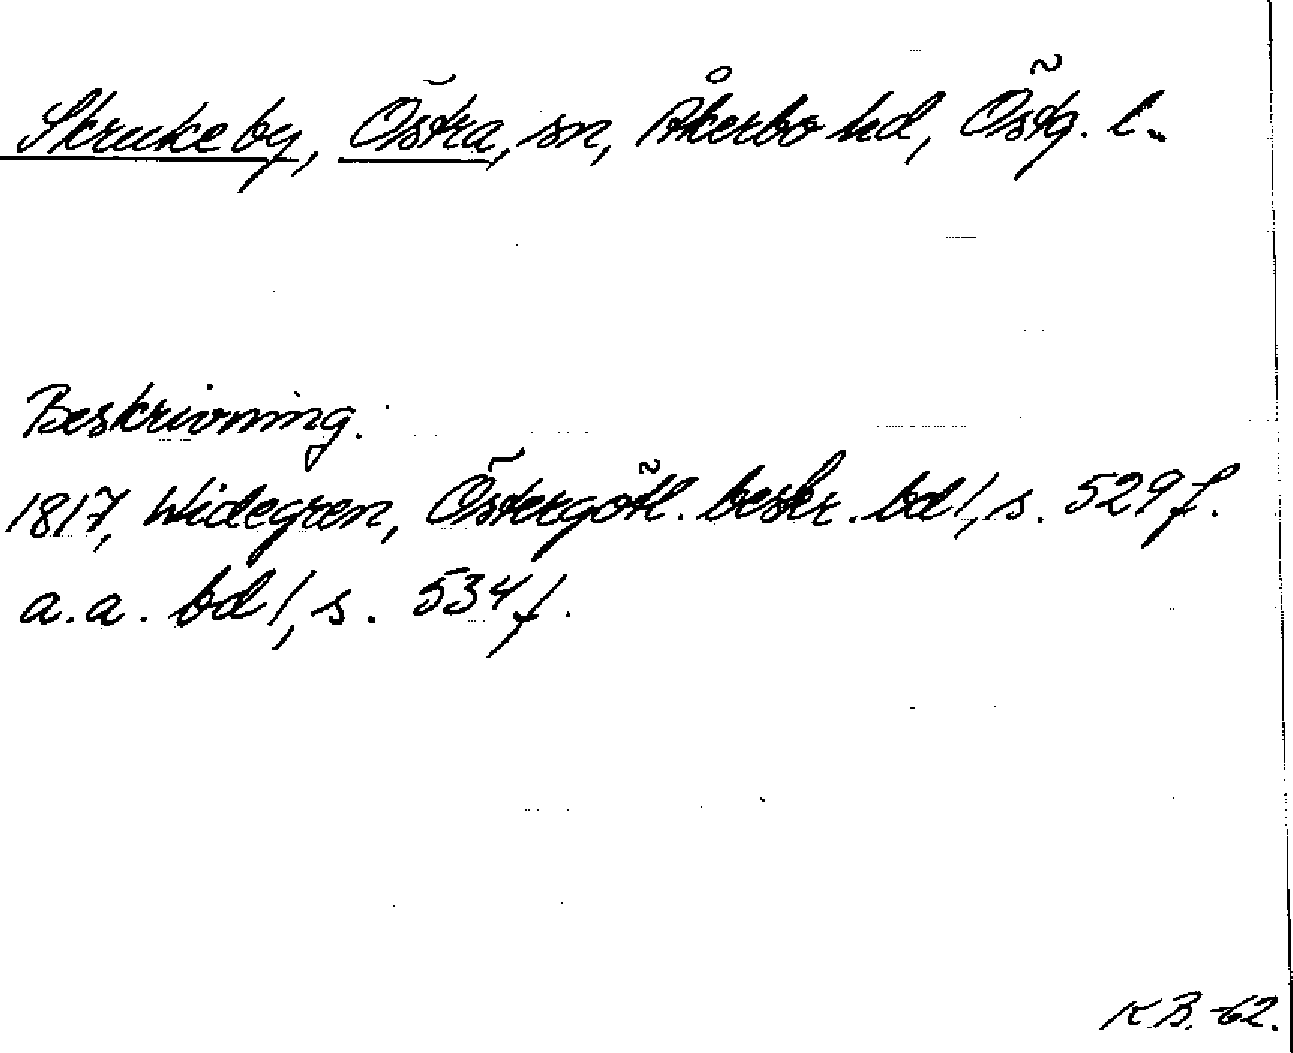 Skrukeby, Östra, sn, Åkerbo hd, Östg. l.
Beskrivning.
1817, Widegren, Östergötl. beskr. bd 1, s. 529 f.
a.a. bd 1, s. 534 f.
K B. -62.